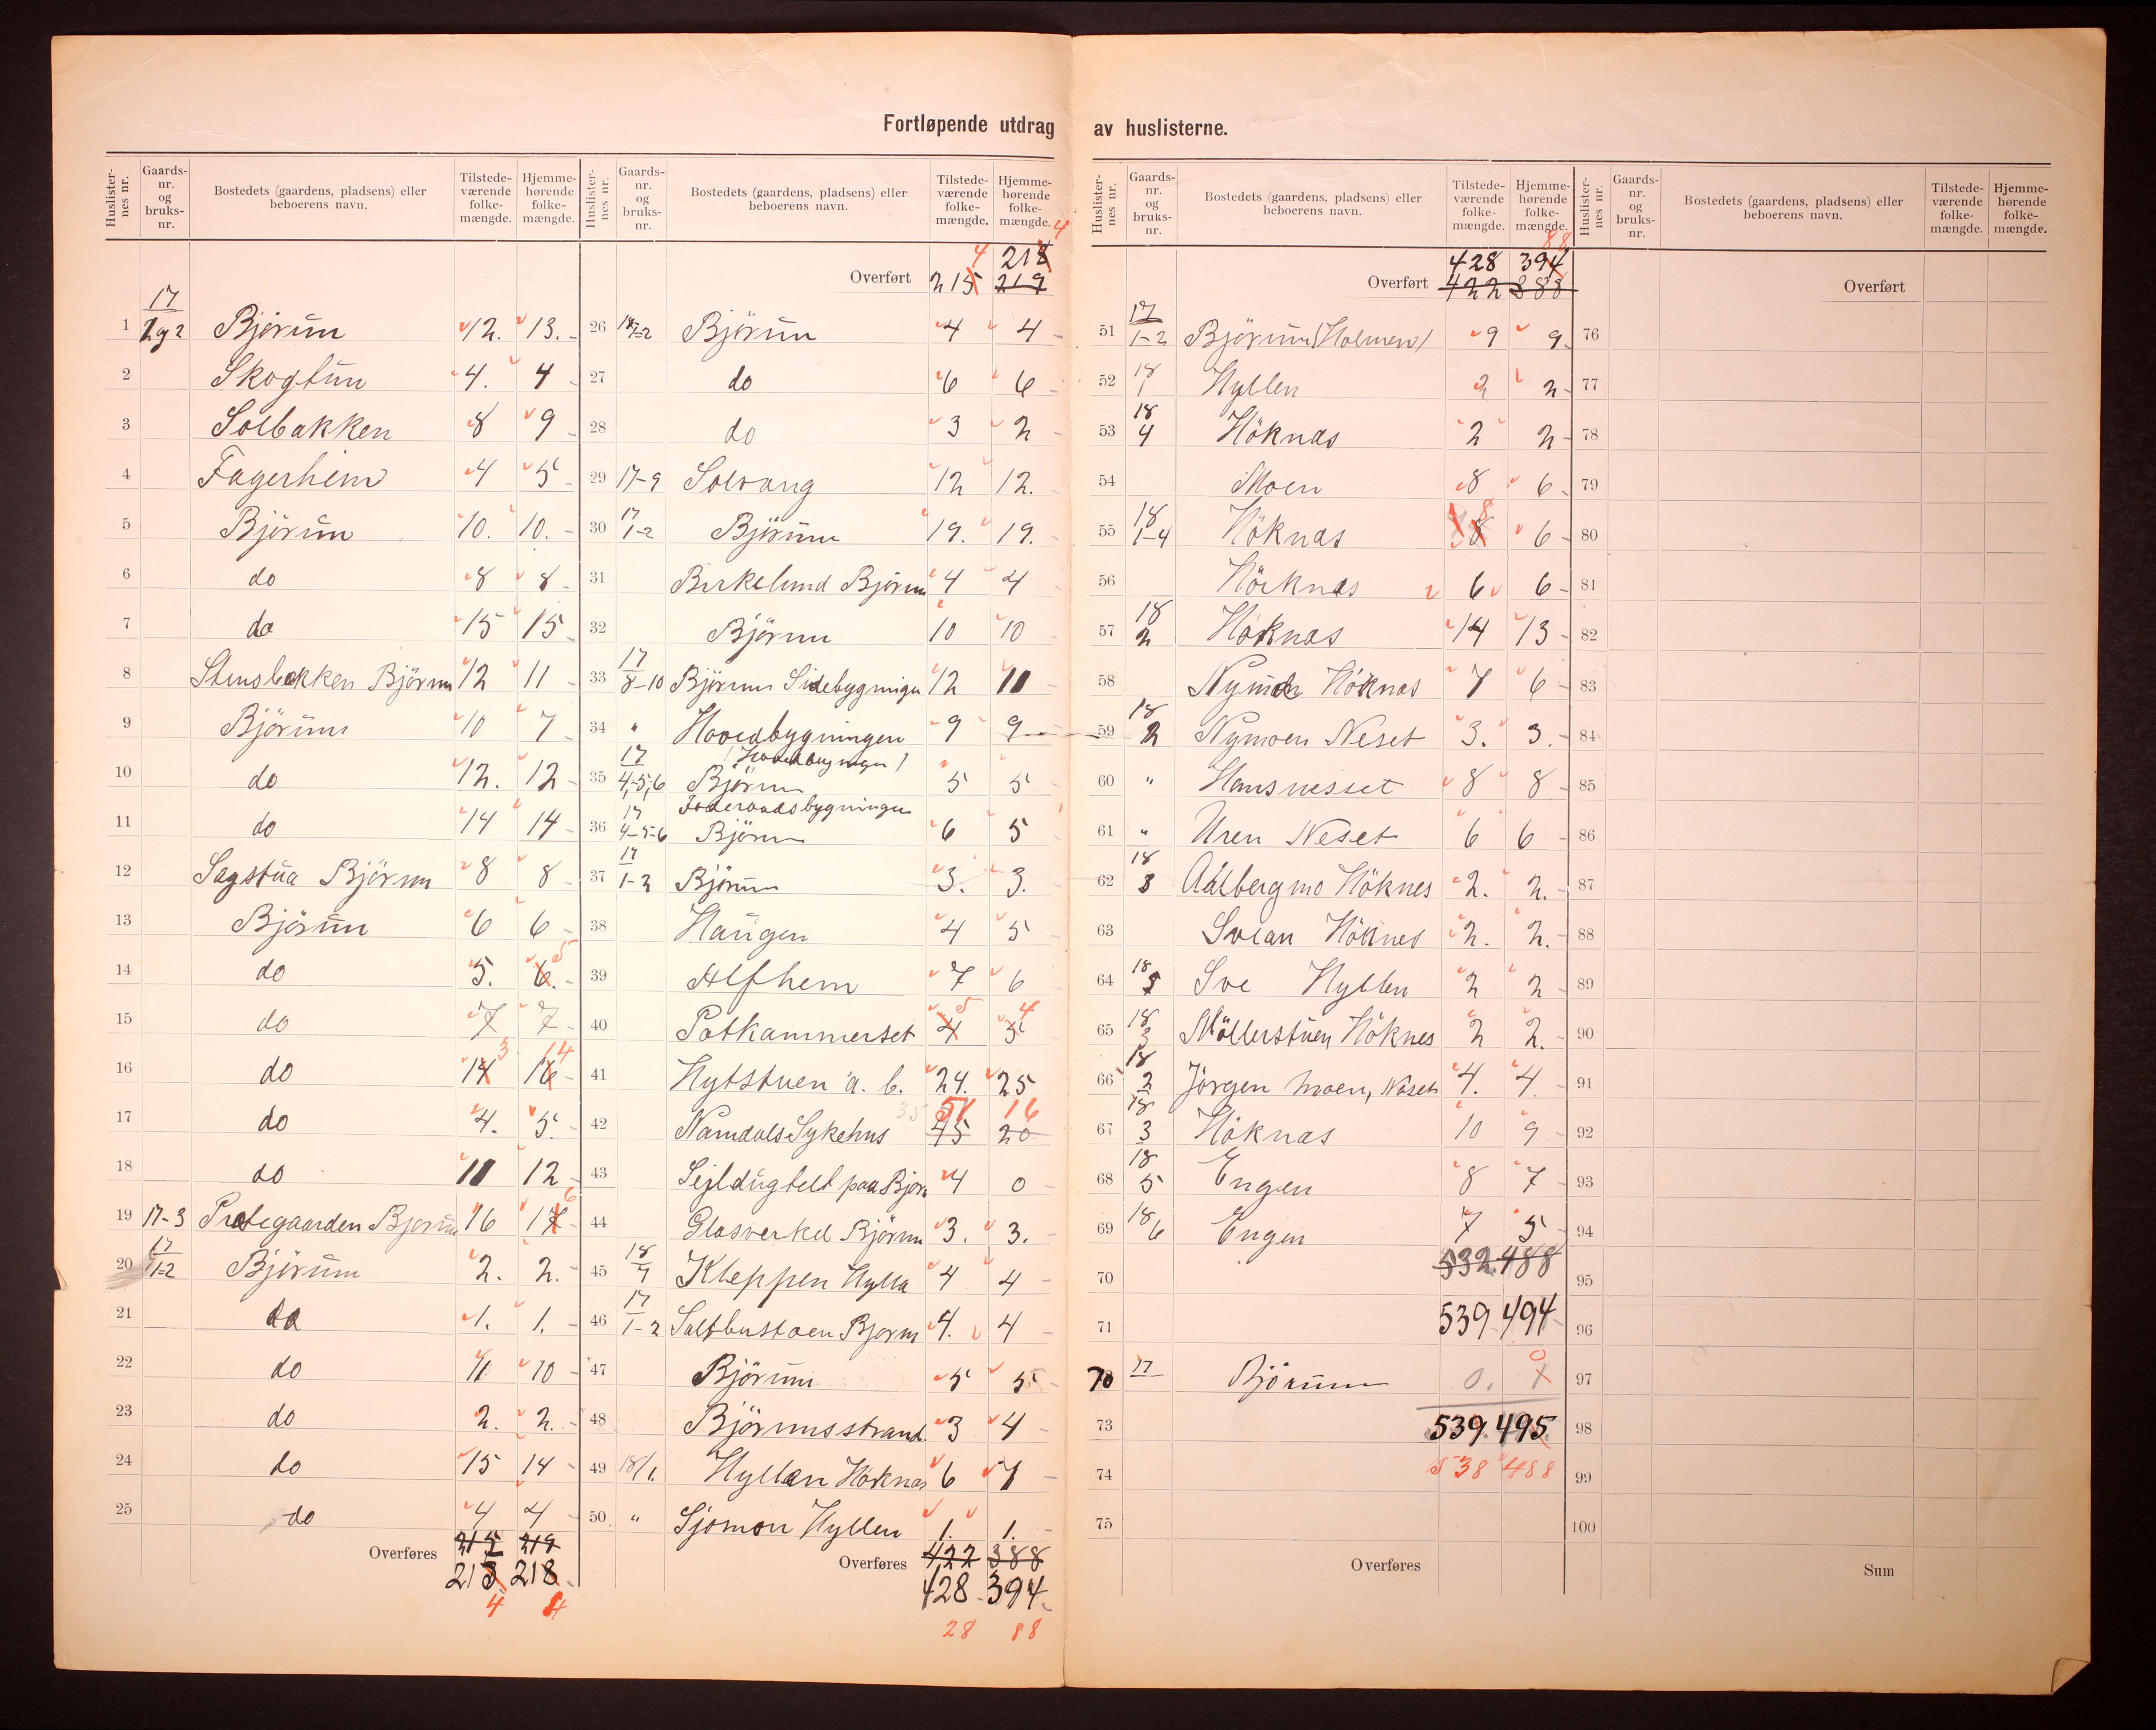 Fortløpende utdrag av huslisterne.
Huslister-nes nr. Gaards-nr. og bruks-nr. Bostedets (gaardens, pladsens) eller beboerens navn. Tilstede-værende folke-mængde. Hjemme-hørende folke-mængde.
1 17 1 og 2 Bjørum 12. 13.
2 Skogtun 4. 4
3 Solbakken 8 9
4 Fagerheim 4 5
5 Bjørum 10. 10.
6 do 8 8
7 do 15 15
8 Stensbakken Bjørum 12 11
9 Bjørum 10 7
10 do 12. 12
11 do 14 14
12 Sagstua Bjørum 8 8
13 Bjørum 6 6
14 do 5. 6. 5
15 do 7 7
16 do 14 3 16 14
17 do 4. 5.
18 do 11 12
19 17-3 Prestegaarden Bjørum 16 17 6
20 17 1-2 Bjørum 2. 2.
21 do 1. 1.
22 do 11 10
23 do 2. 2.
24 do 15 14
25 do 4 4
Overføres 215 219
215 218
4 4
Huslister-nes nr. Gaards-nr. og bruks-nr. Bostedets (gaardens, pladsens) eller beboerens navn. Tilstede-værende folke-mængde. Hjemme-hørende folke-mængde.
4 218 4
Overført 215 219
26 17 1-2 Bjørum 4 4
27 do 6 6
28 do 3 2
29 17-9 Solvang 12 12.
30 17 1-2 Bjørum 19. 19.
31 Birkelund Bjørum 4 4
32 Bjørum 10 10
33 17 8-10 Bjørum Sidebygningen 12 11
34 " Hovedbygningen 9 9
35 17 4,-5,6 (Hovedbygningen) Bjørum 5 5
36 17 4-5-6 Føderaadsbygningen Bjørum 6 5
37 17 1-2 Bjørum 3. 3.
38 Haugen 4 5
39 Alfhem 7 6
40 Potkammerset 4 5 5 4
41 Nytstuen a. b. 24. 25
42 Namdals Sykehus 35 45 51 20 16
43 Sejldugtelt paa Bjørum 4 0
44 Glasverket Bjørum 3. 3.
45 18 7 Kleppen Hylla 4 4
46 17 1-2 Saltbustoen Bjørum 4. 4
47 Bjørum 5 5
48 Bjørumsstrand. 3 4
49 18/1 Hyllan Høknas 6 7
50 " Sjømon Hyllen 1. 1.
Overføres 422 388
428 394
28 88
Huslister-nes nr. Gaards-nr. og bruks-nr. Bostedets (gaardens, pladsens) eller beboerens navn. Tilstede-værende folke-mængde. Hjemme-hørende folke-mængde.
88
428 394
Overført 422 388
51 17 1-2 Bjørum (Holmen) 9 9
52 18 1 Hyllen 2 2
53 18 4 Høknas 2 2
54 Moen 8 6
55 18 1-4 Høknas 8 8 6
56 Høcknas 6 6
57 18 2 Høknas 14 13
58 Nymoen Høknas 7 6
59 18 2 Nymoen Neset 3. 3.
60 " Hansnesset 8 8
61 " Uren Neset 6 6
62 18 3 Aalbergmo Høknes 2. 2.
63 Svean Høknes 2. 2.
64 18 Sve Hyllen 2 2
65 18 3 Møllerstuen Høknes 2 2.
66 18 2 Jørgen moen, Neset 4. 4.
67 18 3 Høknas 10 9
68 18 5 Engen 8 7
69 18 6 Engen 7 5
70 532 488
71 539 494
70 17 Bjørum 0. 1 0
73 539. 495.
74 538 488
75
Overføres
Huslister-nes nr. Gaards-nr. og bruks-nr. Bostedets (gaardens, pladsens) eller beboerens navn. Tilstede-værende folke-mængde. Hjemme-hørende folke-mængde.
Overført
76
77
78
79
80
81
82
83
84
85
86
87
88
89
90
91
92
93
94
95
96
97
98
99
100
Sum